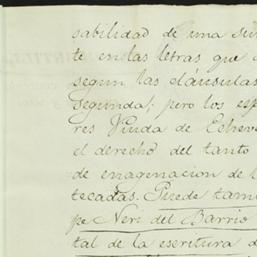 sabilidad de una
te en las letras que
segun las cláusulas
segunda; pero los
res Viuda de Echev
el derecho del tanto
de enagenacion de
tecadas. Puede tam
pe Neri del Barrio
tal de la escritura d